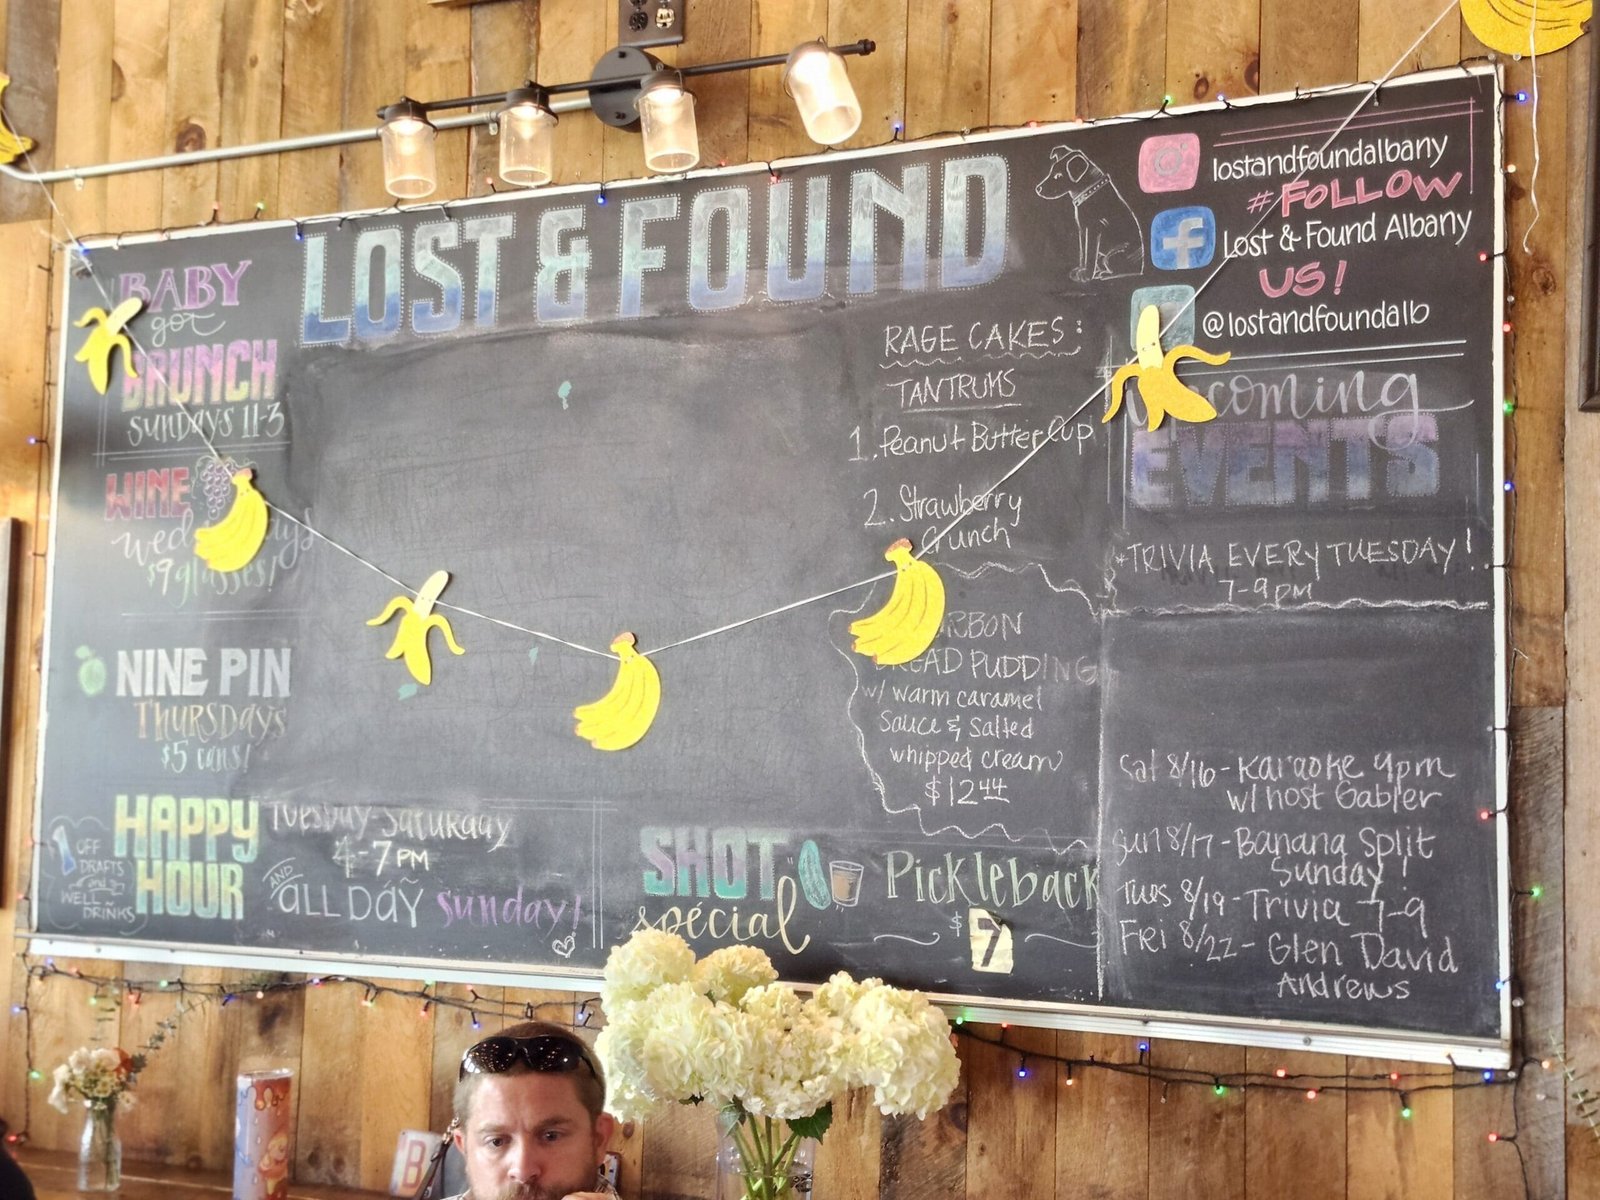 LOST & FOUND
BABY
got
BRUNCH
SUNDAYS 11-3
WINE
$9 glasses!
NINE PIN
THURSDAYS
$5 cans!
OFF
DRAFTS
and
WELL
DRINKS
HAPPY
HOUR
Tuesday-Saturday
4-7PM
AND
ALL DAY sunday!
SHOT
spécial
Pickleback
$7
RAGE CAKES:
TANTRUMS
1. Peanut Butter Cup
2. Strawberry
Crunch
PUDDING
w/ warm caramel
Sauce & Salted
whipped cream
$12.44
lostandfoundalbany
#FOLLOW
Lost & Found Albany
US!
@lostandfoundalb
upcoming
EVENTS
*TRIVIA EVERY TUESDAY!
7-9PM
Sat 8/16-Karaoke 9pm
w/ host Gabler
Sun 8/17-Banana Split
Sunday!
Tues 8/19-Trivia 7-9
Fri 8/22-Glen David
Andrews
B